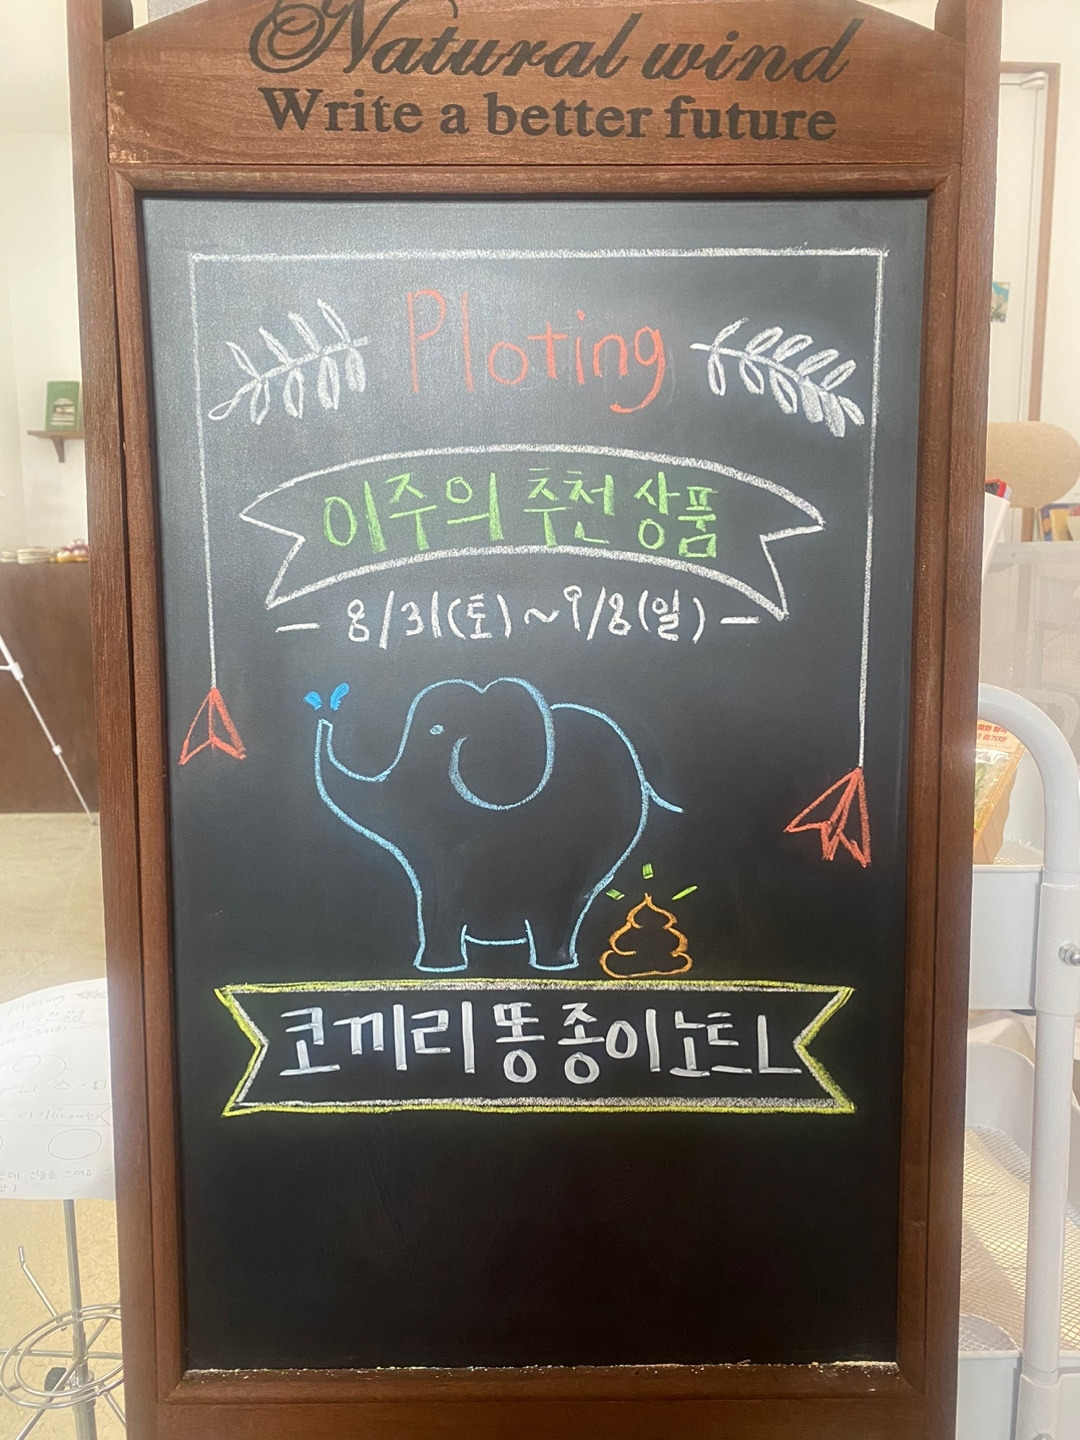 Natural wind
Write a better future
Ploting
이주의 추천 상품
- 8/31(토)~9/8(일) -
코끼리 똥 종이노트L